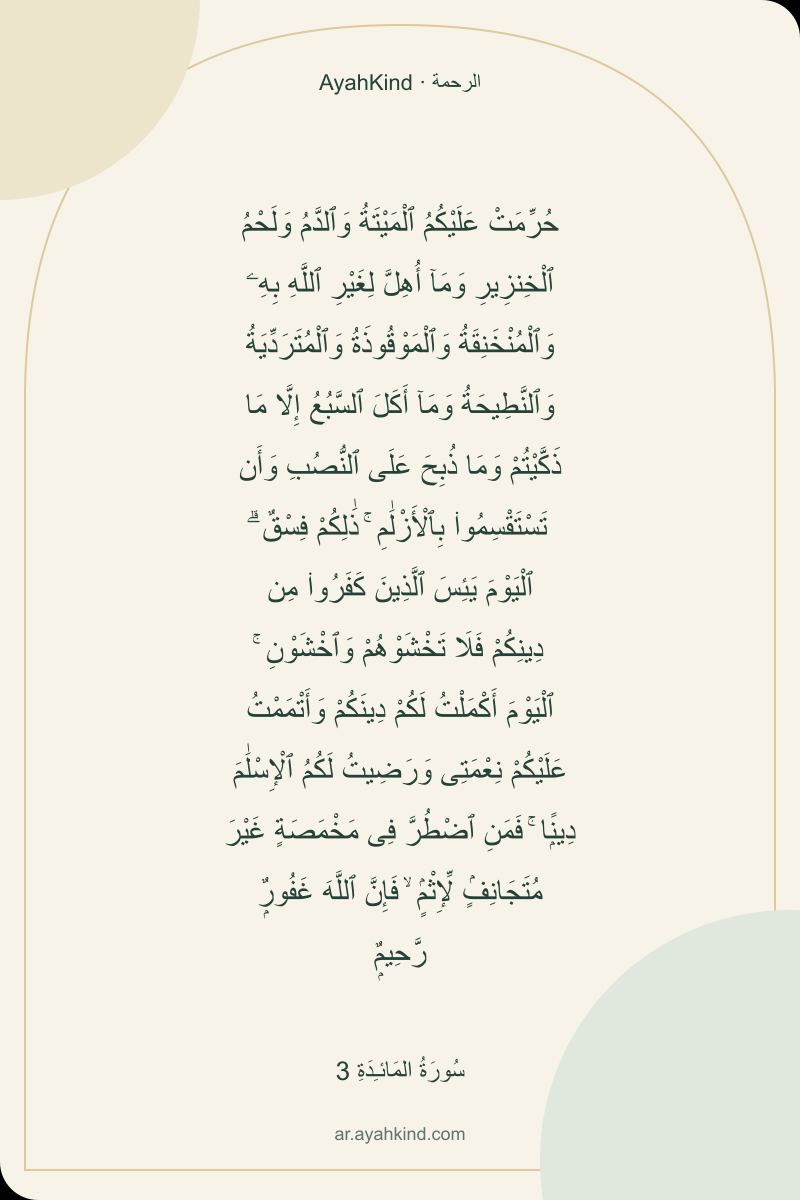 AyahKind · الرحمة
حُرِّمَتْ عَلَيْكُمُ ٱلْمَيْتَةُ وَٱلدَّمُ وَلَحْمُ
ٱلْخِنزِيرِ وَمَآ أُهِلَّ لِغَيْرِ ٱللَّهِ بِهِۦ
وَٱلْمُنْخَنِقَةُ وَٱلْمَوْقُوذَةُ وَٱلْمُتَرَدِّيَةُ
وَٱلنَّطِيحَةُ وَمَآ أَكَلَ ٱلسَّبُعُ إِلَّا مَا
ذَكَّيْتُمْ وَمَا ذُبِحَ عَلَى ٱلنُّصُبِ وَأَن
تَسْتَقْسِمُوا۟ بِٱلْأَزْلَٰمِ ۚ ذَٰلِكُمْ فِسْقٌ ۗ
ٱلْيَوْمَ يَئِسَ ٱلَّذِينَ كَفَرُوا۟ مِن
دِينِكُمْ فَلَا تَخْشَوْهُمْ وَٱخْشَوْنِ ۚ
ٱلْيَوْمَ أَكْمَلْتُ لَكُمْ دِينَكُمْ وَأَتْمَمْتُ
عَلَيْكُمْ نِعْمَتِى وَرَضِيتُ لَكُمُ ٱلْإِسْلَٰمَ
دِينًۭا ۚ فَمَنِ ٱضْطُرَّ فِى مَخْمَصَةٍ غَيْرَ
مُتَجَانِفٍۢ لِّإِثْمٍۢ ۙ فَإِنَّ ٱللَّهَ غَفُورٌۭ
رَّحِيمٌۭ
سُورَةُ المَائـِدَةِ 3
ar.ayahkind.com